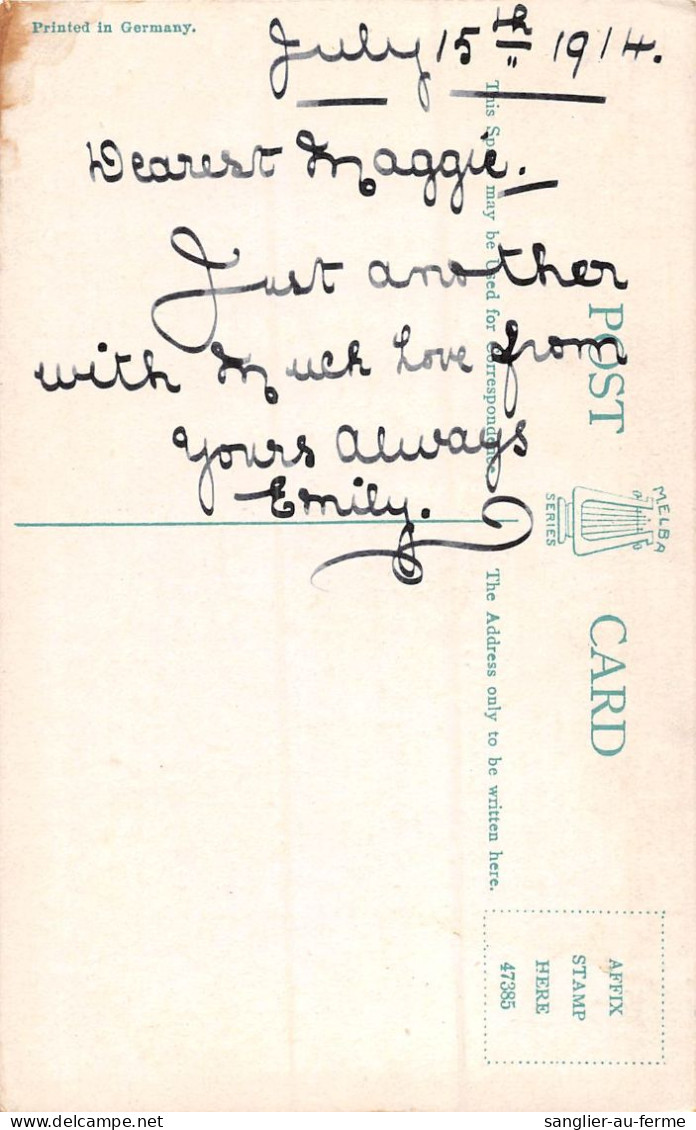 Printed in Germany.
July 15th 1914.
Dearest Maggie.
Just another
with Much Love from
Yours Always
Emily.
POST CARD
MELBA
SERIES
This Space may be Used for Correspondence
The Address only to be written here.
AFFIX
STAMP
HERE
47385
sanglier-au-ferme